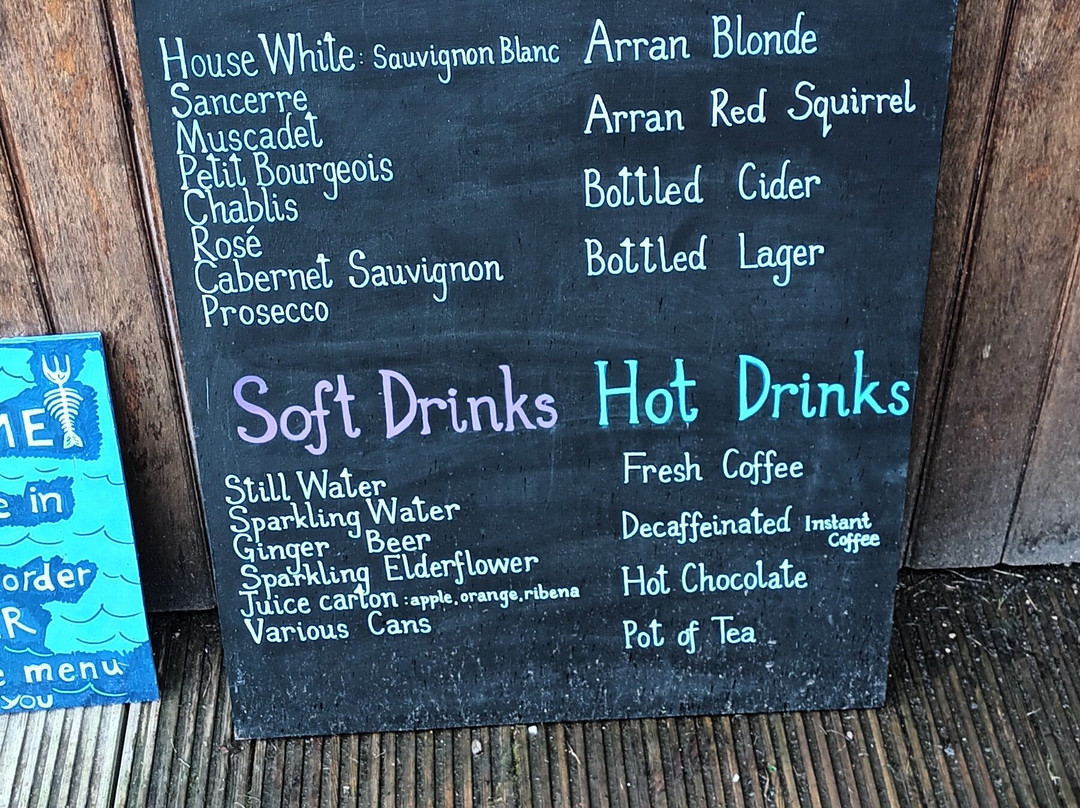 House White: Sauvignon Blanc
Sancerre
Muscadet
Petit Bourgeois
Chablis
Rosé
Cabernet Sauvignon
Prosecco
Arran Blonde
Arran Red Squirrel
Bottled Cider
Bottled Lager
Soft Drinks
Still Water
Sparkling Water
Ginger Beer
Sparkling Elderflower
Juice carton: apple, orange, ribena
Various Cans
Hot Drinks
Fresh Coffee
Decaffeinated Instant
Coffee
Hot Chocolate
Pot of Tea
ME
e in
order
R
e menu
you